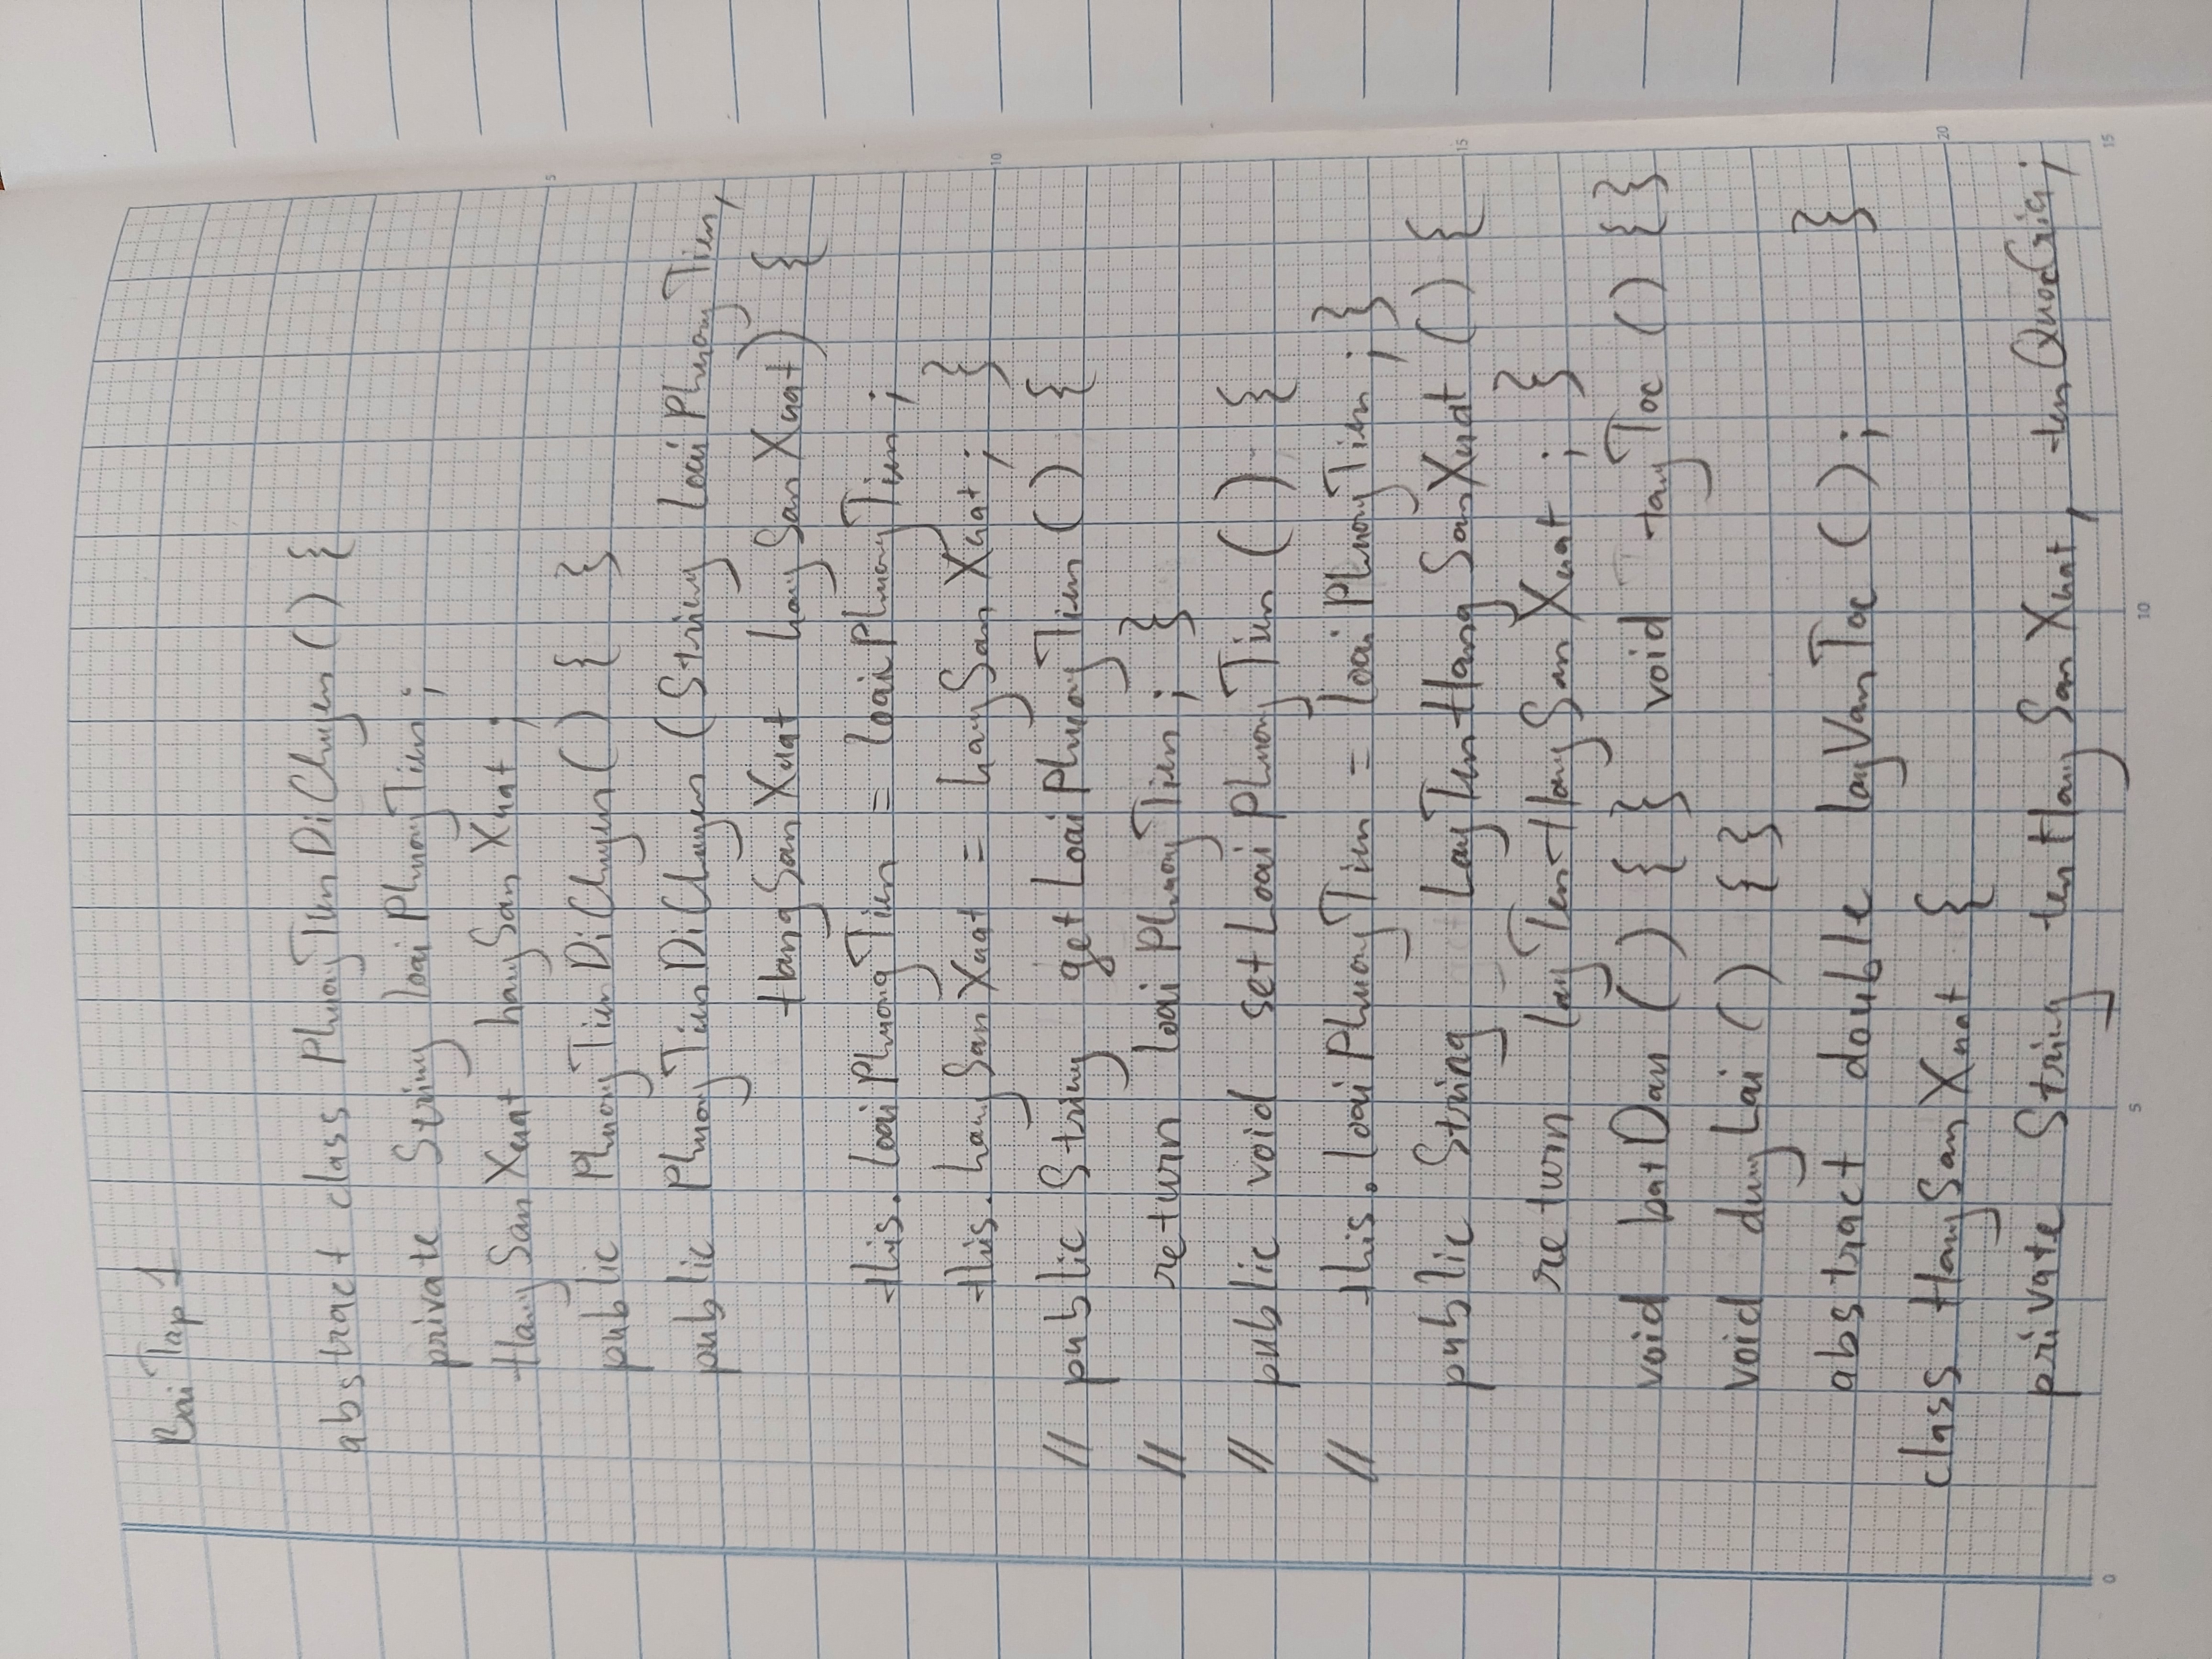 Bai Tap 1
abstract class PhuongTienDiChuyen () {
private String loaiPhuongTien ;
HangSanXuat hangSanXuat ;
public PhuongTienDiChuyen () { }
public PhuongTienDiChuyen (String loaiPhuongTien,
HangSanXuat hangSanXuat) {
this.loaiPhuongTien = loaiPhuongTien ;
this.hangSanXuat = hangSanXuat ; }
// public String getLoaiPhuongTien () {
// return loaiPhuongTien ; }
// public void setLoaiPhuongTien () {
// this.loaiPhuongTien = loaiPhuongTien ; }
public String LayTenHangSanXuat () {
return layTenHangSanXuat ; }
void batDau () { } void tangToc () { }
void dungLai () { }
abstract double layVanToc () ; }
class HangSanXuat {
private String tenHangSanXuat, tenQuocGia ;
5
10
15
20
0 5 10 15